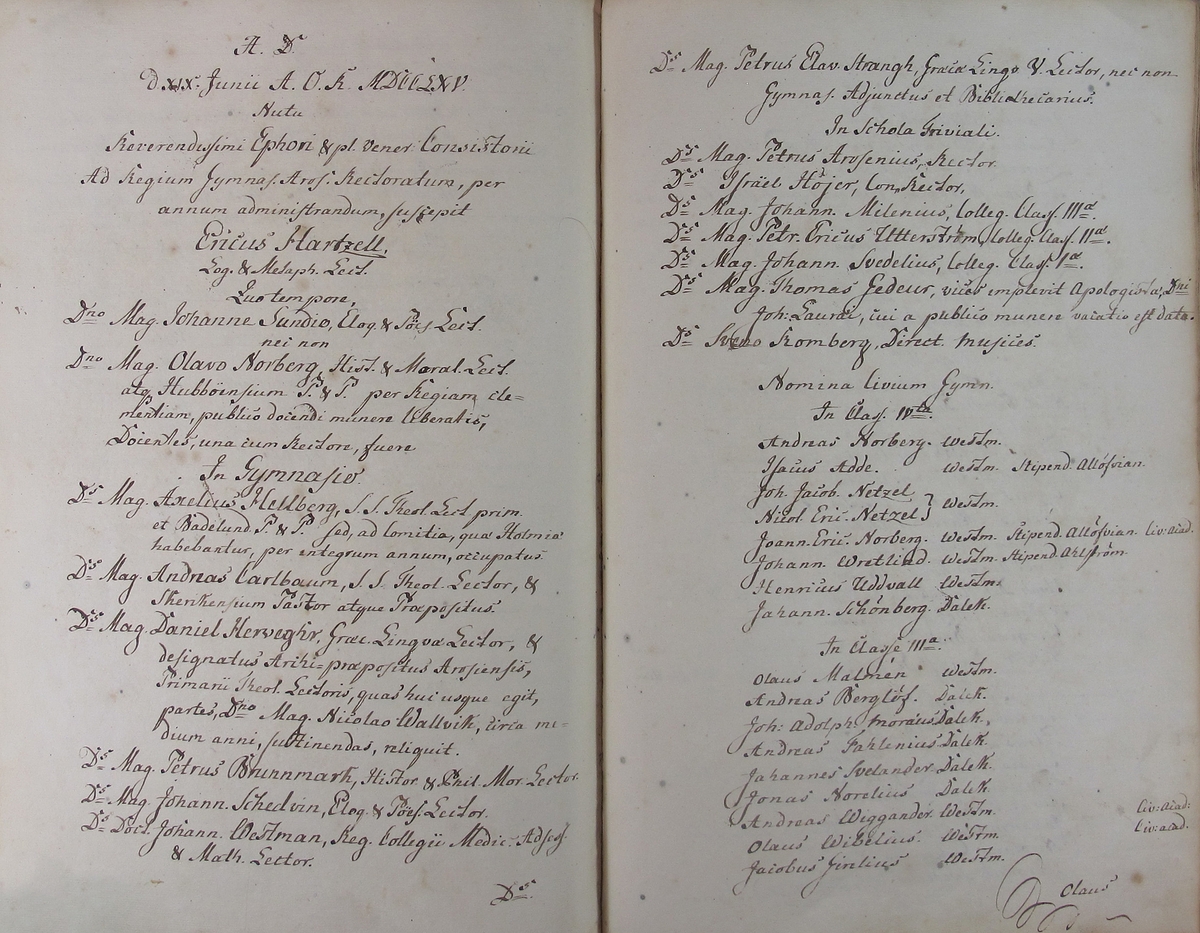 A. D.
D. XIX. Junii A. O. R. MDCCLXV.
Nutu
Reverendissimi Ephori & pl. Vener. Consistorii
Ad Regium Gymnas. Aros. Rectoratum, per
annum administrandum, suscepit
Ericus Hartzell
Log. & Metaph. Lect.
Quo tempore,
Dno Mag. Johanne Sundio, Eloq. & Poës. Lect.
nec non
Dno Mag. Olavo Norberg, Hist. & Moral. Lect.
atq. Hubböensium P. & P. per Regiam cle=
mentiam, publico docendi munere liberatis,
Docentes, una cum Rectore, fuere
In Gymnasio
Ds Mag. Axelius Hellberg, S. S. Theol. Lect. prim.
et Badelund. P. & P. sed, ad Comitia, quæ Holmiæ
habebantur, per integrum annum, occupatus
Ds Mag. Andreas Carlbaum, S. S. Theol. Lector, &
Skerikensium Pastor atque Præpositus
Ds Mag. Daniel Herveghr, Græc. Lingvæ Lector, &
designatus Archi=præpositus Arosiensis,
Primarii Theol. Lectoris, quas huc usque egit,
partes, Dno Mag. Nicolao Wallvik, circa me=
dium anni, sustinendas, reliquit.
Ds Mag. Petrus Brunnmark, Histor. & Phil. Mor. Lector.
Ds Mag. Johann. Schedvin, Eloq. & Poës. Lector.
Ds Doct. Johann. Westman, Reg. Collegii Medic. Adsess.
& Math. Lector.
Ds
Ds Mag. Petrus Elav. Strangh, Græcæ Lingv. V. Lector, nec non
Gymnas. Adjunctus et Bibliothecarius.
In Schola Triviali.
Ds Mag. Petrus Arosenius, Rector
Ds Israël Höjer, Con-Rector,
Ds Mag. Johann. Milenius, Colleg. Class. IIIæ.
Ds Mag. Petr. Ericus Utterström, Colleg. Class. IIæ.
Ds Mag. Johann. Svedelius, Colleg. Class. Iæ.
Ds Mag. Thomas Gedeur, vices implevit Apologistæ, Dni
Joh: Lauræi, cui a publico munere vacatio est data.
Ds Sveno Romberg, Direct. Musices.
Nomina Civium Gymn.
In Class. IVta.
Andreas Norberg. Westm.
Isacus Adde. Westm. Stipend. Allöfvian.
Joh. Jacob. Netzel
Nicol. Eric. Netzel } Westm.
Joann. Eric. Norberg. Westm. Stipend. Allöfvian Civ: Acad.
Johann. Wretlind. Westm. Stipend. Ahlström.
Henricus Uddvall Westm.
Johann. Schönberg. Dalek.
In Classe IIIa.
Olaus Malmén Westm.
Andreas Berglöf. Dalek.
Joh: Adolph. Moræus Dalek.
Andreas Fahlenius Dalek.
Johannes Svelander Dalek.
Jonas Norelius Dalek.
Andreas Weggander. Westm. Civ: Acad:
Olaus Wibelius. Westm. Civ: acad.
Jacobus Girelius Westm.
Olaus